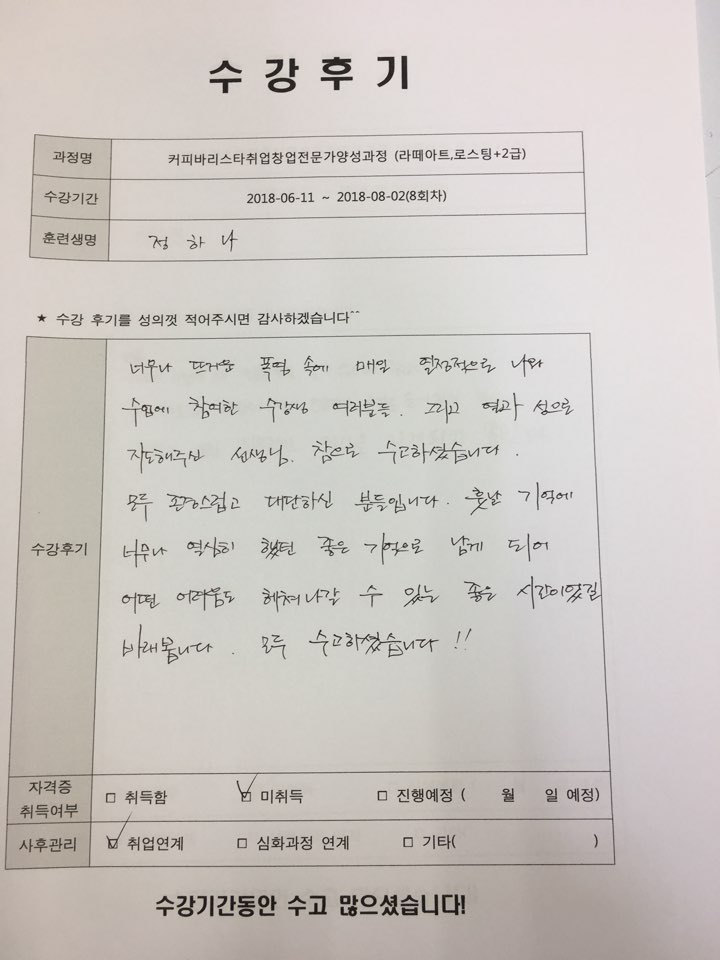 수강후기
과정명 커피바리스타취업창업전문가양성과정 (라떼아트,로스팅+2급)
수강기간 2018-06-11 ~ 2018-08-02(8회차)
훈련생명 정하나
★ 수강 후기를 성의껏 적어주시면 감사하겠습니다^^
너무나 뜨거운 폭염 속에 매일 열정적으로 나와
수업에 참여한 수강생 여러분들. 그리고 열과 성으로
지도해주신 선생님. 참으로 수고하셨습니다.
모두 존경스럽고 대단하신 분들입니다. 훗날 기억에
수강후기 너무나 열심히 했던 좋은 기억으로 남게 되어
어떤 어려움도 헤쳐나갈 수 있는 좋은 시간이었길
바래봅니다. 모두 수고하셨습니다!!
자격증
취득여부 □ 취득함 ☑ 미취득 □ 진행예정 ( 월 일 예정)
사후관리 ☑ 취업연계 □ 심화과정 연계 □ 기타( )
수강기간동안 수고 많으셨습니다!